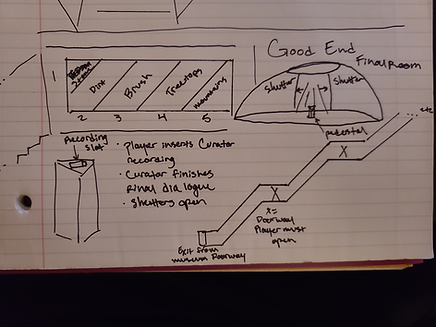 Good End
Final Room
shutter
shutter
pedestal
1
Dirt
Brush
Treetops
mountains
2
3
4
5
etc
Recording
slot
• Player inserts Curator
recording
• Curator finishes
final dialogue
• shutters open
X
X
X=
Doorway
Player must
open
Exit from
museum Doorway